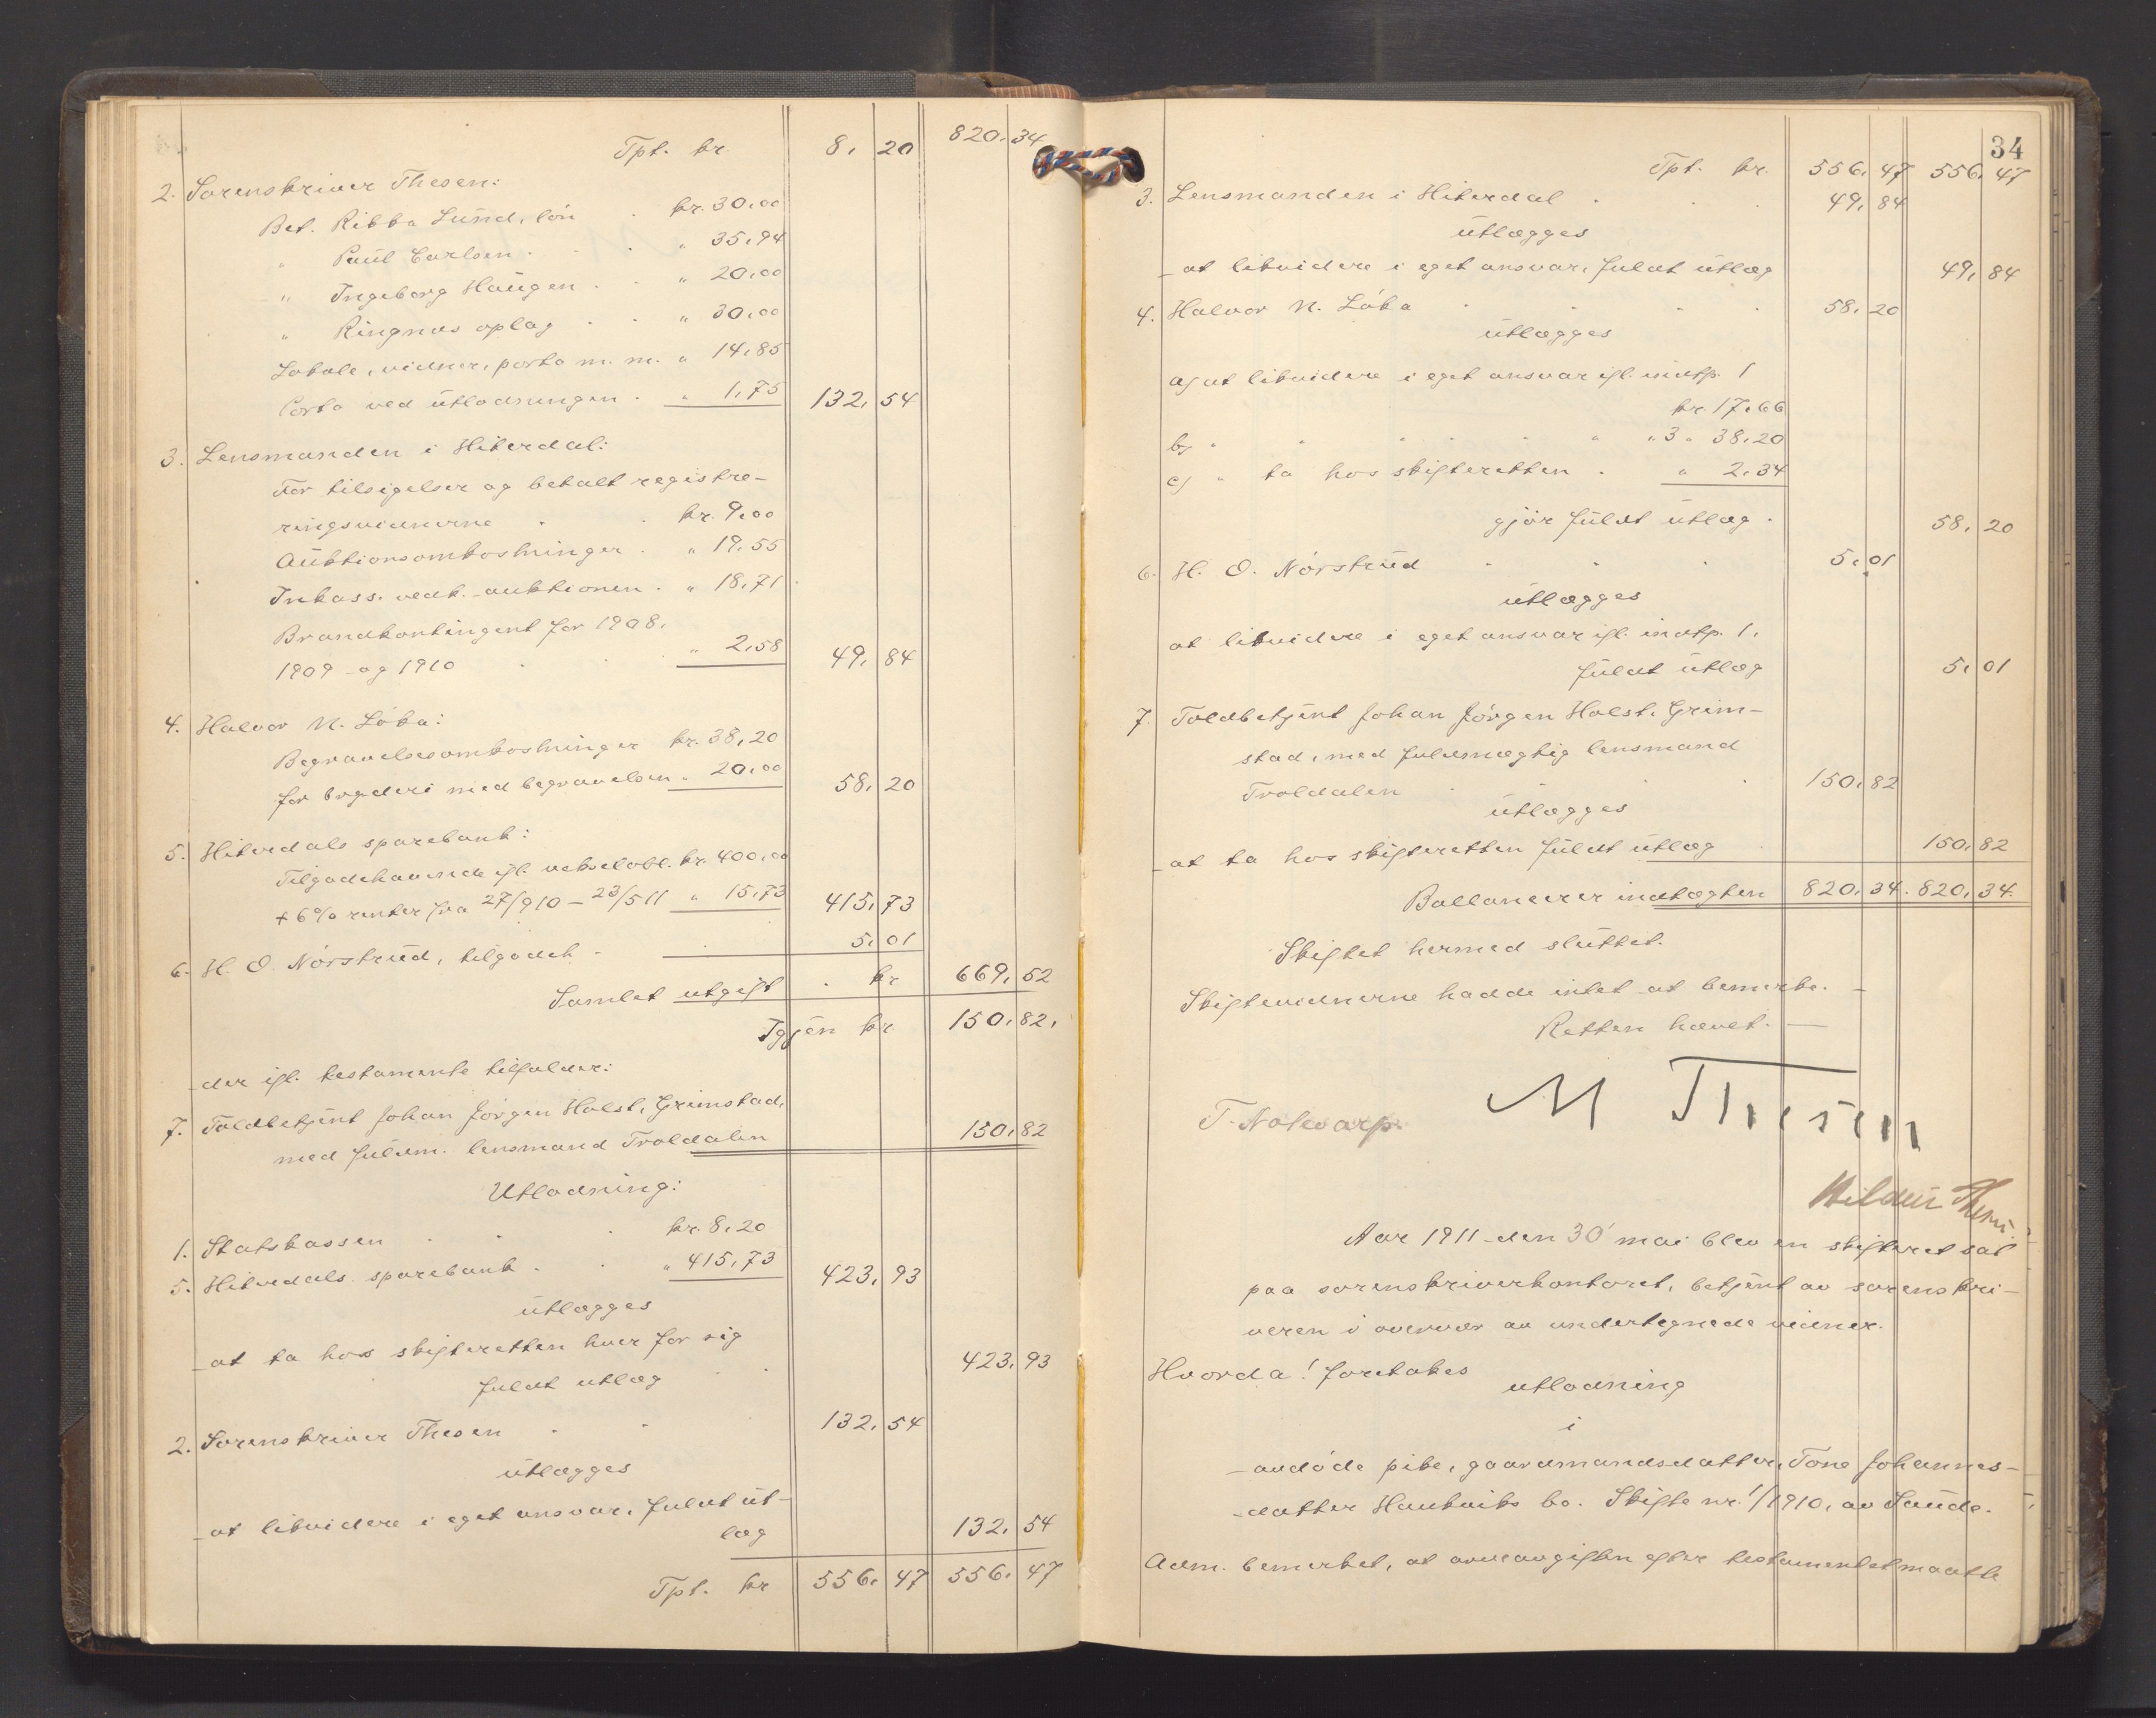 Tpt. kr. 8, 20 820, 34
2. Sorenskriver Thesen:
Bet. Ribba Lund, lön . kr. 30,00
" Paul Carlsen . . " 35,94
" Ingeborg Haugen . . " 20,00
" Ringnes oplag . . " 30,00
Lokale, vidner, porto m. m. " 14,85
Porto ved utlodningen . " 1,75 132, 54
3. Lensmanden i Hiterdal:
For tilsigelser og betalt registre-
ringsvidnerne . . kr. 9,00
Auktionsomkostninger . " 19,55
Inkass. vedk. auktionen . " 18,71
Brandkontingent for 1908,
1909 og 1910 . . " 2,58 49, 84
4. Halvor N. Löka:
Begravelsesomkostninger kr. 38,20
for bryderi med begravelsen " 20,00 58, 20
5. Hiterdals sparebank:
Tilgodehavende ifl. vekselobl. kr. 400,00
+ 6% renter fra 27/9 10 – 23/5 11 " 15,73 415, 73
6. H. O. Nörstrud, tilgodeh. . 5, 01
Samlet utgift . kr 669, 52
Igjen kr. 150, 82,
der ifl. testamente tilfalder:
7. Toldbetjent Johan Jörgen Holst, Grimstad,
med fuldm. lensmand Troldalen 150, 82
Utlodning:
1. Statskassen . . . kr. 8,20
5. Hiterdals sparebank . . " 415,73 423, 93
utlægges
at ta hos skifteretten hver for sig
fuldt utlæg . . 423, 93
2. Sorenskriver Thesen . . 132, 54
utlægges
at likvidere i eget ansvar, fuldt ut-
læg 132, 54
Tpt. kr 556, 47 556, 47
34
Tpt. kr. 556, 47 556, 47
3. Lensmanden i Hiterdal . . . 49, 84
utlægges
at likvidere i eget ansvar, fuldt utlæg 49, 84
4. Halvor N. Löka . . . . 58, 20
utlægges
a) at likvidere i eget ansvar ifl. indtp. 1
kr. 17,66
b) " " " " " " 3 " 38,20
c) " ta hos skifteretten . " 2,34
gjör fuldt utlæg . 58, 20
6. H. O. Nörstrud . . . 5, 01
utlægges
at likvidere i eget ansvar ifl. indtp. 1,
fuldt utlæg 5, 01
7. Toldbetjent Johan Jörgen Holst, Grim-
stad, med fuldmægtig lensmand
Troldalen . . . 150, 82
utlægges
at ta hos skifteretten fuldt utlæg . 150, 82
Ballancerer indtægten 820, 34. 820, 34.
Skiftet hermed sluttet.
Skiftevidnerne hadde intet at bemerke. –
Retten hævet. –
M Thesen
T. Notevarp.
Aar 1911 den 30' mai blev en skifteret sat
paa sorenskriverkontoret, betjent av sorenskri-
veren i overvær av undertegnede vidner.
Hvorda! foretokes
utlodning
i
avdöde pike, gaardmandsdatter, Tone Johannes-
datter Haukviks bo. Skifte nr. 1/1910, av Saude.
Adm. bemerket, at arveavgiften efter testamentet maatte